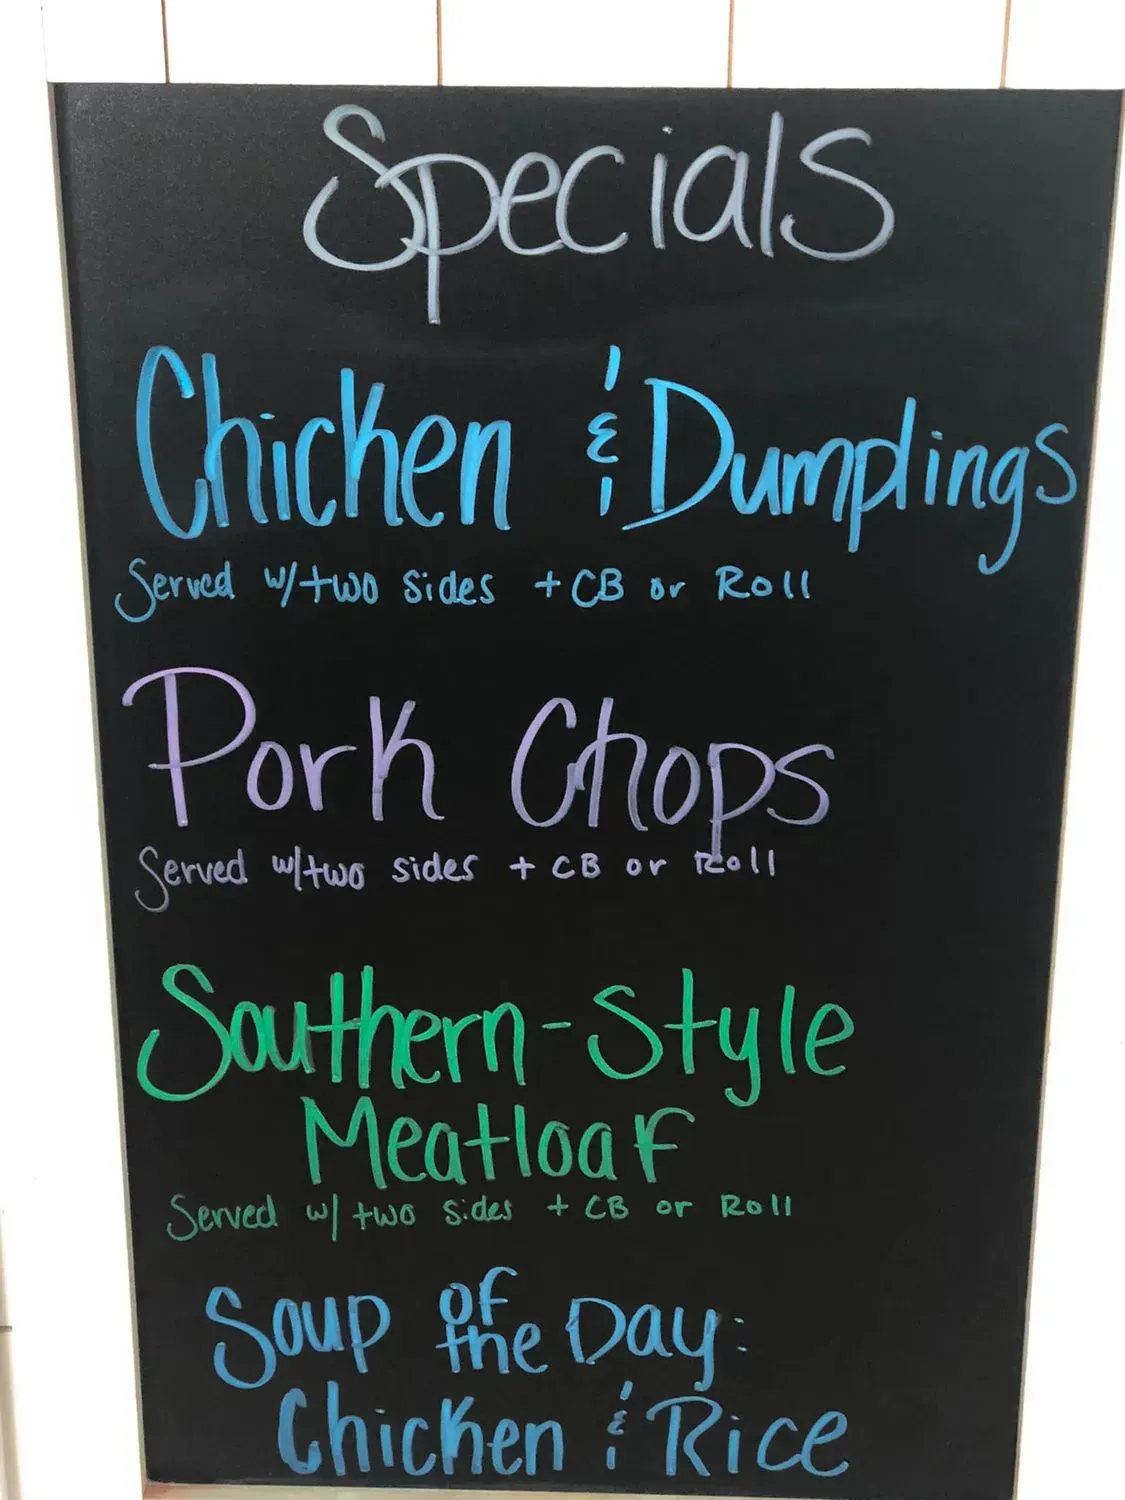 Specials
Chicken & Dumplings
Served w/two sides + CB or Roll
Pork Chops
Served w/two sides + CB or Roll
Southern-Style
Meatloaf
Served w/ two sides + CB or Roll
Soup of the Day:
Chicken & Rice